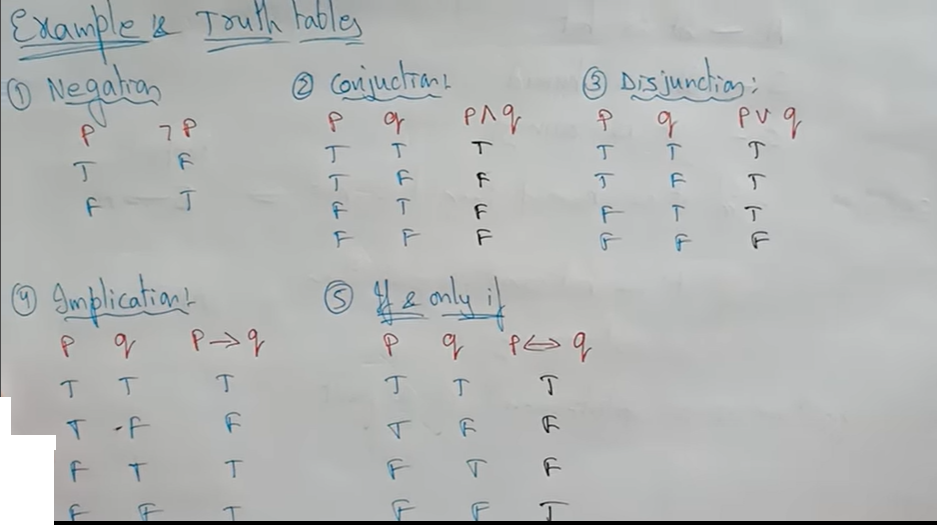 Example & Truth tables
① Negation
P ¬P
T F
F T
② Conjuction:
P q P∧q
T T T
T F F
F T F
F F F
③ Disjunction:
P q P∨q
T T T
T F T
F T T
F F F
④ Implication:
P q P→q
T T T
T F F
F T T
F F T
⑤ If & only if
P q P↔q
T T T
T F F
F T F
F F T